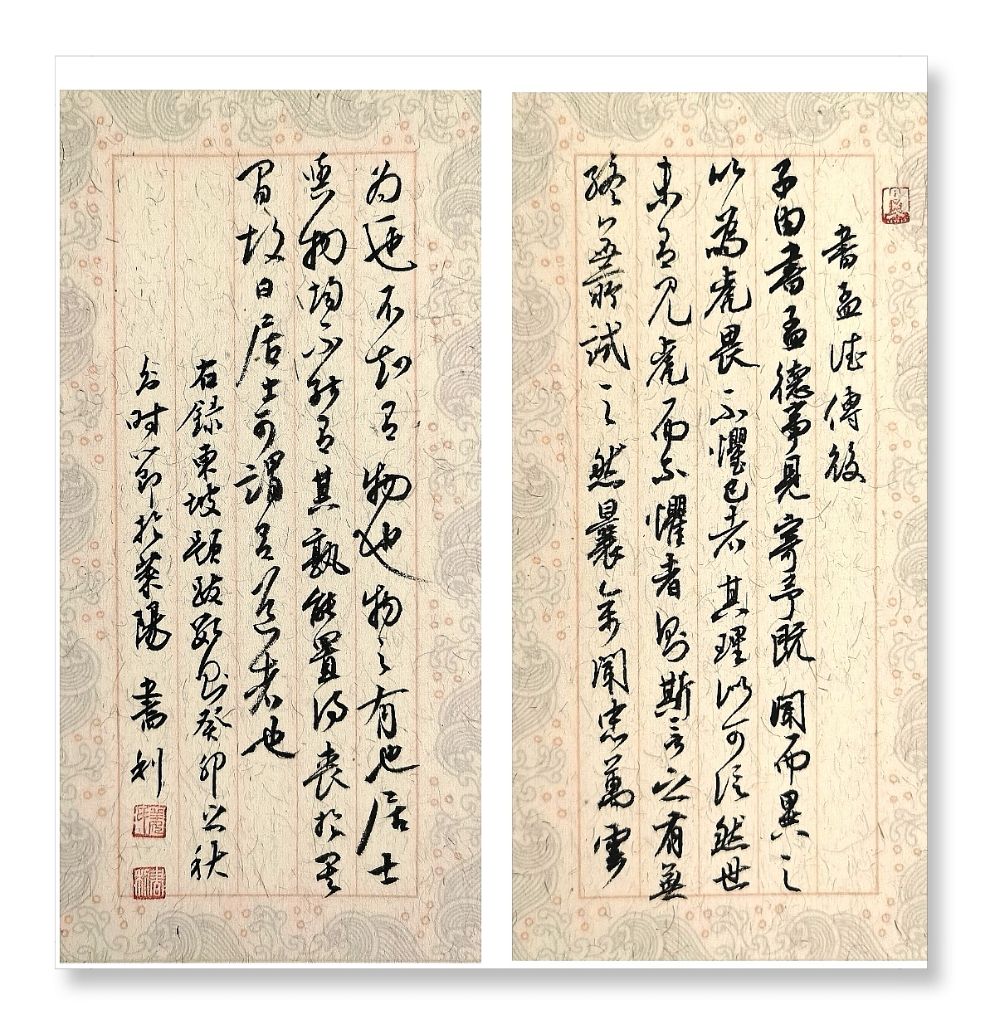 書孟德傳後
子由書孟德事見寄予既聞而異之
以為虎畏不懼己者其理似可信然世
未有見虎而不懼者則斯言之有無
終無所試之然曩余聞忠萬雲
為已不知有物也物之有也居士
與物均不能有其孰能置得喪於其
間故曰居士可謂有道者也
右錄東坡題跋 癸卯之秋
時節於萊陽 書利